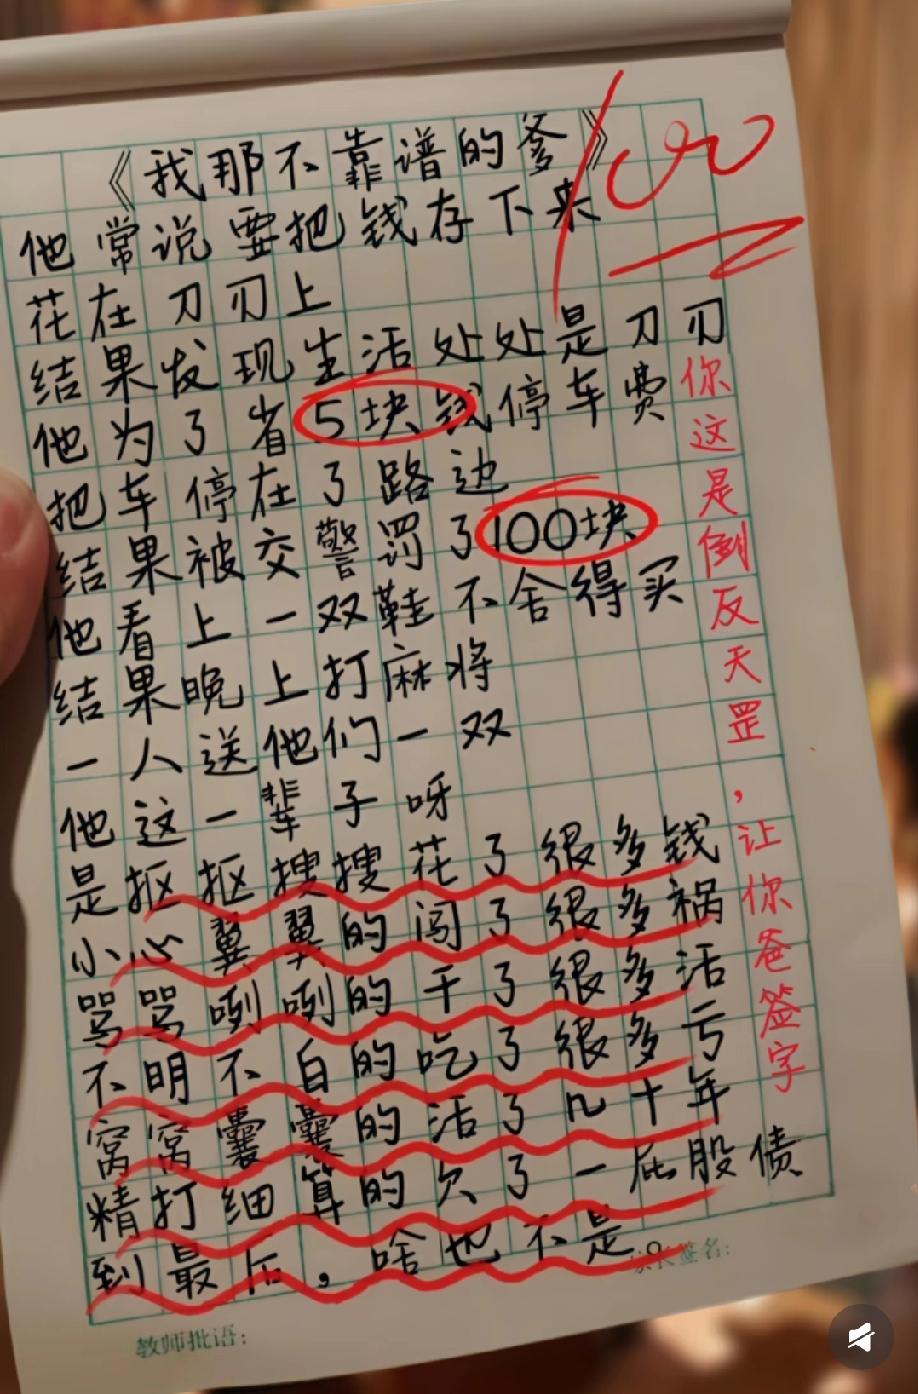 《我那不靠谱的爹》
100
他常说要把钱存下来
花在刀刃上
结果发现生活处处是刀刃
他为了省5块钱停车费
把车停在了路边
结果被交警罚了100块
他看上一双鞋不舍得买
结果晚上打麻将
一人送他们一双
他这一辈子呀
是抠抠搜搜花了很多钱
小心翼翼的闯了很多祸
骂骂咧咧的干了很多活
不明不白的吃了很多亏
窝窝囊囊的活了几十年
精打细算的欠了一屁股债
到最后，啥也不是。
你这是倒反天罡，让你爸签字
签名：
教师批语：